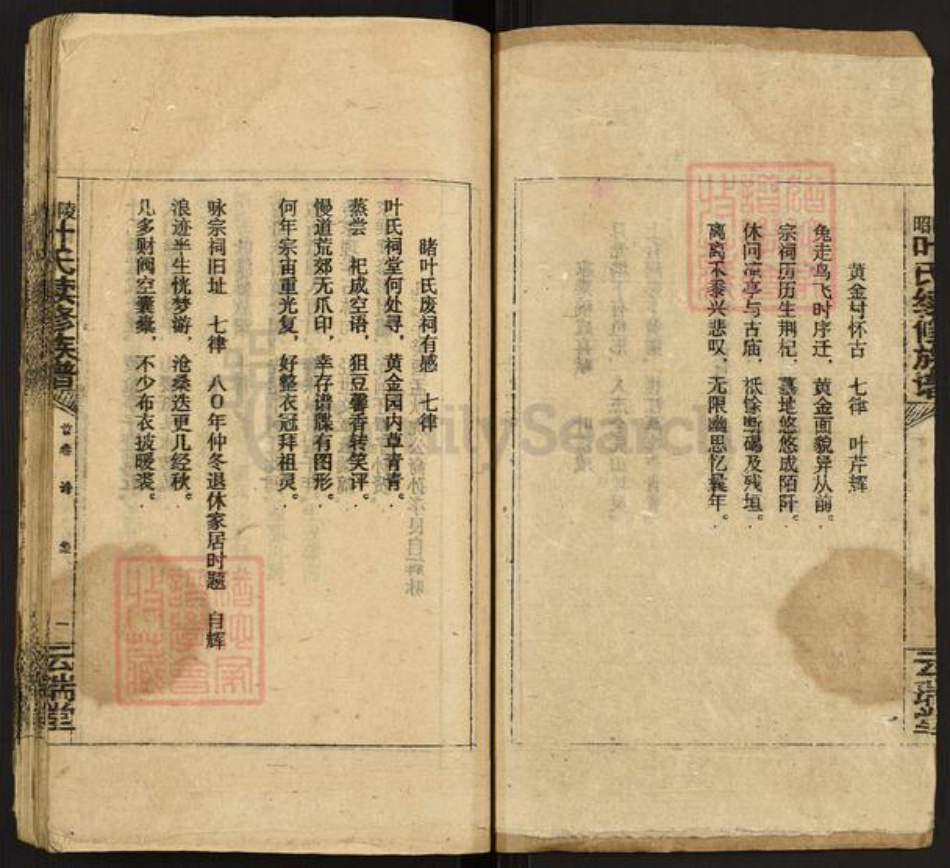 昭
叶氏续修族谱
云瑞堂
黄金村怀古　七律　叶芹辉
兔走鸟飞时序迁，黄金面貌异从前。
宗祠历历生荆杞，墓地悠悠成陌阡。
休问凉亭与古庙，祗馀断碣及残垣。
离离禾黍兴悲叹，无限幽思忆曩年。
睹叶氏废祠有感　七律
叶氏祠堂何处寻，黄金园内草青青。
蒸尝　祀成空语，狙豆馨香转笑评。
慢道荒郊无爪印，幸存谱牒有图形。
何年宗亩重光复，好整衣冠拜祖灵。
咏宗祠旧址　七律　八０年仲冬退休家居时题　自辉
浪迹半生恍梦游，沧桑迭更几经秋。
几多财阀空囊橐，不少布衣披暖裘。
陵
叶氏续修族谱
首卷　诗
一
云瑞堂
FamilySearch